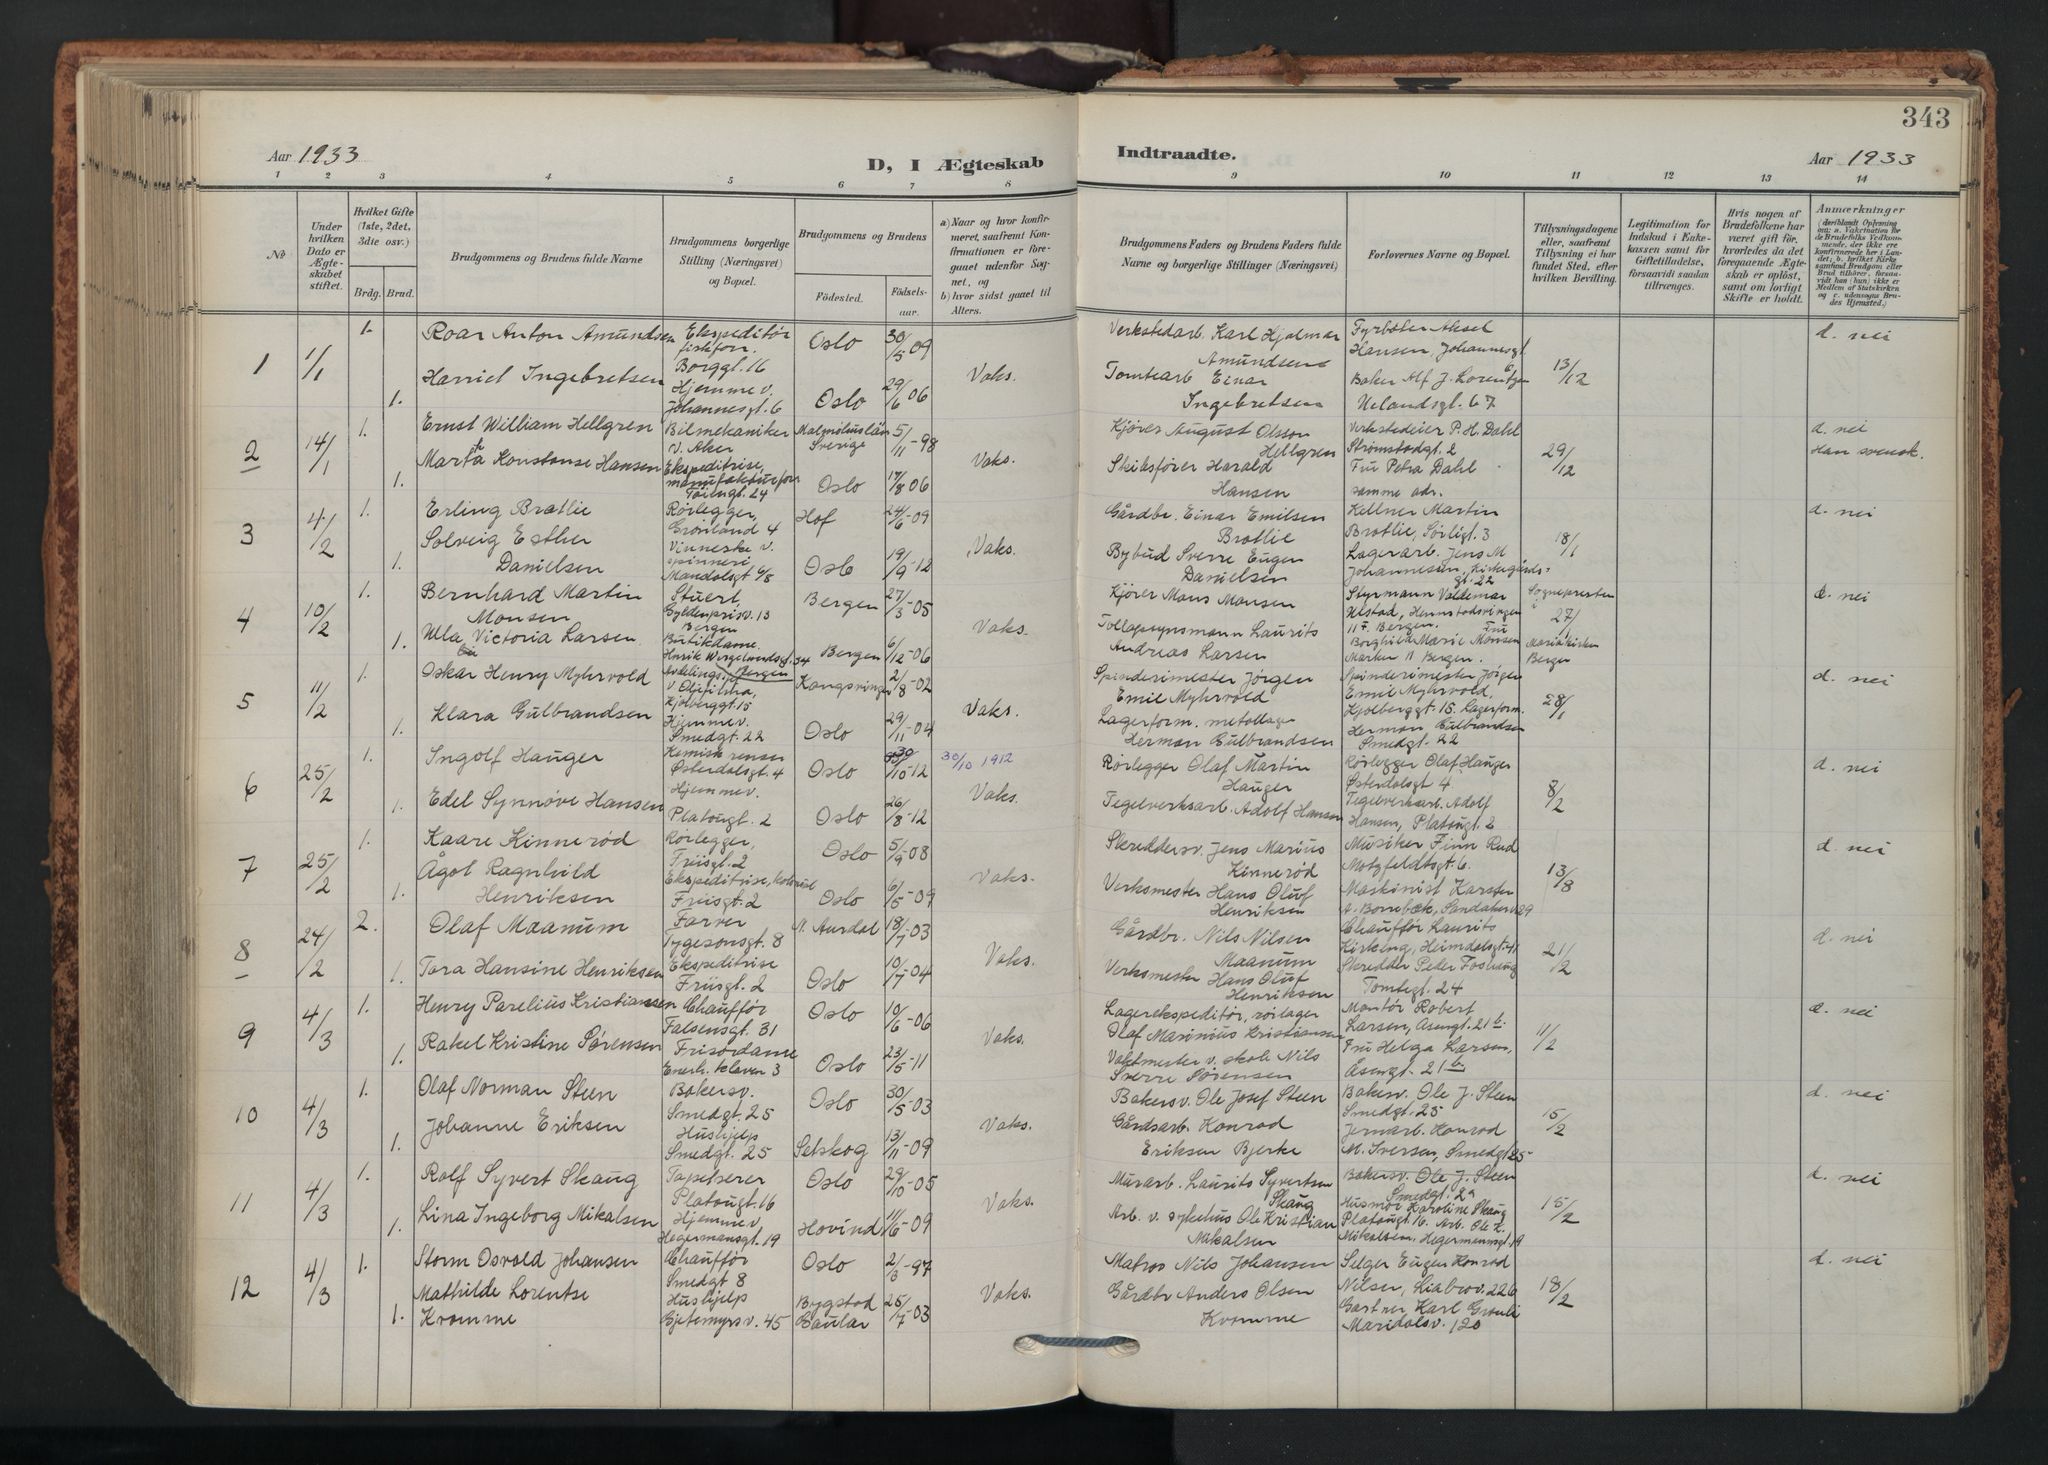 343
Aar 1933
D, I Ægteskab
Indtraadte.
Aar 1933
1 2 3 4 5 6 7 8
9 10 11 12 13 14
No
Under hvilken Dato er Ægteskabet stiftet.
Hvilket Gifte (1ste, 2det, 3die osv.)
Brdg. Brud.
Brudgommens og Brudens fulde Navne
Brudgommens borgerlige Stilling (Næringsvei) og Bopæl.
Brudgommens og Brudens
Fødested. Fødselsaar.
a) Naar og hvor konfirmeret, saafremt Konfirmationen er foregaaet udenfor Sognet, og
b) hvor sidst gaaet til Alters.
Brudgommens Faders og Brudens Faders fulde Navne og borgerlige Stillinger (Næringsvei)
Forlovernes Navne og Bopæl.
Tillysningsdagene eller, saafremt Tillysning ei har fundet Sted, efter hvilken Bevilling.
Legitimation for Indskud i Enkekassen samt for Giftetilladelse, forsaavidt saadan tiltrænges.
Hvis nogen af Brudefolkene har været gift før, hvorledes da det foregaaende Ægteskab er opløst, samt om lovligt Skifte er holdt.
Anmærkninger
1 1/1 1. Roar Anton Amundsen Ekspeditør Borggt. 16 Oslo 30/5 09
1. Harriet Ingebretsen Hjemme v. Johannesgt. 6 Oslo 29/6 06 Vaks.
Verkstedarb. Karl Hjalmar Amundsen Fyrbøter Aksel Hansen Johannesgt. 6 13/12 d. nei
Tomtearb Einar Ingebretsen Baker Alf J. Lorentzen Uelandsgt. 67
2 14/1 1. Ernst William Hellgren Bilmekaniker v. Aker Malmöhuslän Sverige 5/11-98
1. Martha Konstanse Hansen Ekspeditrise, manufakturforr. Tøiengt. 24 Oslo 17/8 06 Vaks.
Kjører August Olsson Hellgren Verkstedeier P. H. Dahl Strømstadgt. 2 29/12 d. nei Han svensk.
Skibsfører Harald Hansen Fru Petra Dahl samme adr.
3 4/2 1. Erling Bratlie Rørlegger, Grønland 4 Hof 24/6-09
1. Solveig Esther Danielsen Vinneske v. spinneri Mandalsgt 6/8 Oslo 19/9-12 Vaks.
Gårdbr. Einar Emilsen Bratlie Kellner Martin Bratlie, Sørligt. 3 18/1 d. nei
Bybud Sverre Eugen Danielsen Lagerarb. Jens M Johannesen, Kirkegårdsgt. 22
4 10/2 1. Bernhard Martin Monsen Stuert, Gyldenprisv. 13 Bergen Bergen 27/3-05
1. Ulla Victoria Larsen Butikdame. Henrik Wergelandsgt. 34 Bergen Bergen 6/12-06 Vaks.
Kjører Mons Monsen Styrmann Valdemar Ulstad, Bergen. Sognepresten i 27/1 Mariakirken Bergen d. nei
Tollopsynsmann Laurits Andreas Larsen Fru Borghild Marie Monsen Marken 11 Bergen.
5 11/2 1. Oskar Henry Myhrvold Kjølberggt. 15 Kongsvinger 2/8-02
1. Klara Gulbrandsen Hjemme v. Smedgt. 22 Oslo 29/11-04 Vaks.
Spinderimester Jørgen Emil Myhrvold Spinderimester Jørgen Emil Myhrvold, Kjølberggt 15. 28/1 d. nei
Lagerform. metallager Herman Gulbrandsen Lagerform. Herman Gulbrandsen Smedgt. 22
6 25/2 1. Ingolf Hauger Kemisk renser Østerdalsgt. 4 Oslo 30/10-12 30/10 1912
1. Edel Synnøve Hansen Hjemme v. Platougt. 2 Oslo 26/8-12 Vaks.
Rørlegger Olaf Martin Hauger Rørlegger Olaf Hauger Østerdalsgt 4 8/2 d. nei
Tegelverksarb. Adolf Hansen Tegelverksarb. Adolf Hansen, Platougt. 2
7 25/2 1. Kaare Kinnerød Rørlegger, Friisgt. 2 Oslo 5/9-08
1. Ågot Ragnhild Henriksen Ekspeditrise, kolonial Friisgt. 2 Oslo 6/5-09 Vaks.
Skreddersv. Jens Marius Kinnerød Musiker Finn Rud Motzfeldtsgt. 6. 13/8 d. nei
Verksmester Hans Oluf Henriksen Maskinist Karsten A. Borrebæk, Sandakerv. 29
8 24/2 2. Olaf Maanum Farver Tygesonsgt. 8 N. Aurdal 18/7-03
1. Tora Hansine Henriksen Ekspeditrise Friisgt. 2 Oslo 10/7-04 Vaks.
Gårdbr. Nils Nilsen Maanum Chauffør Laurits Kirkeng, Heimdalsgt. 41 21/2 d. nei
Verksmester Hans Oluf Henriksen Skredder Peder Foshaug Tomtegt. 24
9 4/3 1. Henry Parelius Kristiansen Chauffør Falsensgt. 31 Oslo 10/6-06
1. Rakel Kristine Sørensen Frisørdame Enerh. kleven 3 Oslo 23/5-11 Vaks.
Lagerekspeditør, rørlager Olaf Marinius Kristiansen Montør Robert Larsen, Åsengt. 21 b. 11/2 d. nei
Vaktmester v. skole Nils Sverre Sørensen Fru Helga Larsen, Åsengt. 21 b
10 4/3 1. Olaf Norman Steen Bakersv. Smedgt. 25 Oslo 30/5-03
1. Johanne Eriksen Hushjelp Smedgt. 25 Setskog 13/11-09 Vaks.
Bakersv. Ole Josef Steen Bakersv. Ole J. Steen Smedgt. 25 15/2 d. nei
Gårdsarb. Konrad Eriksen Bjerke Jernarb. Konrad M. Iversen, Smedgt 25
11 4/3 1. Rolf Syvert Skaug Tapetserer Platougt. 16 Oslo 29/10-05
1. Lina Ingeborg Mikalsen Hjemme v. Hegermannsgt. 19 Hovind 11/6-09 Vaks.
Murarb. Laurits Syvertsen Skaug Bakersv. Ole J. Steen Smedgt. 29 Husmor Karoline Skaug Platougt. 16. 15/2 d. nei
Arb. v. sykehus Ole Kristian Mikalsen Arb. Ole K. Mikalsen, Hegermannsgt. 19
12 4/3 1. Storm Osvald Johansen Chauffør Smedgt 8 Oslo 2/3-97
1. Mathilde Lorentse Kvamme Hushjelp Gjetemyrsv. 45 Bygstad Gaular 25/7-03 Vaks.
Matros Nils Johansen Selger Eugen Konrad Nilsen, Liabrov. 226 18/2 d. nei
Gårdbr Anders Olsen Kvamme Gartner Karl Grønli Maridalsv. 120